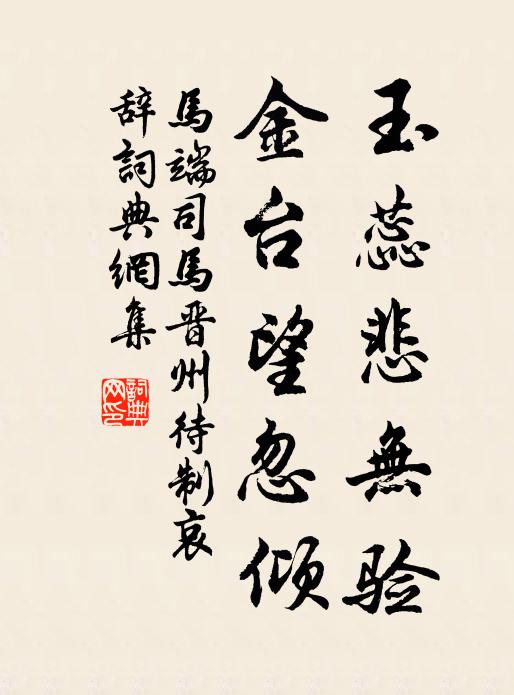 玉蕊悲無验
金台望忽倾
馬端司馬晋州待制哀
辞詞典網集
詞典
网印